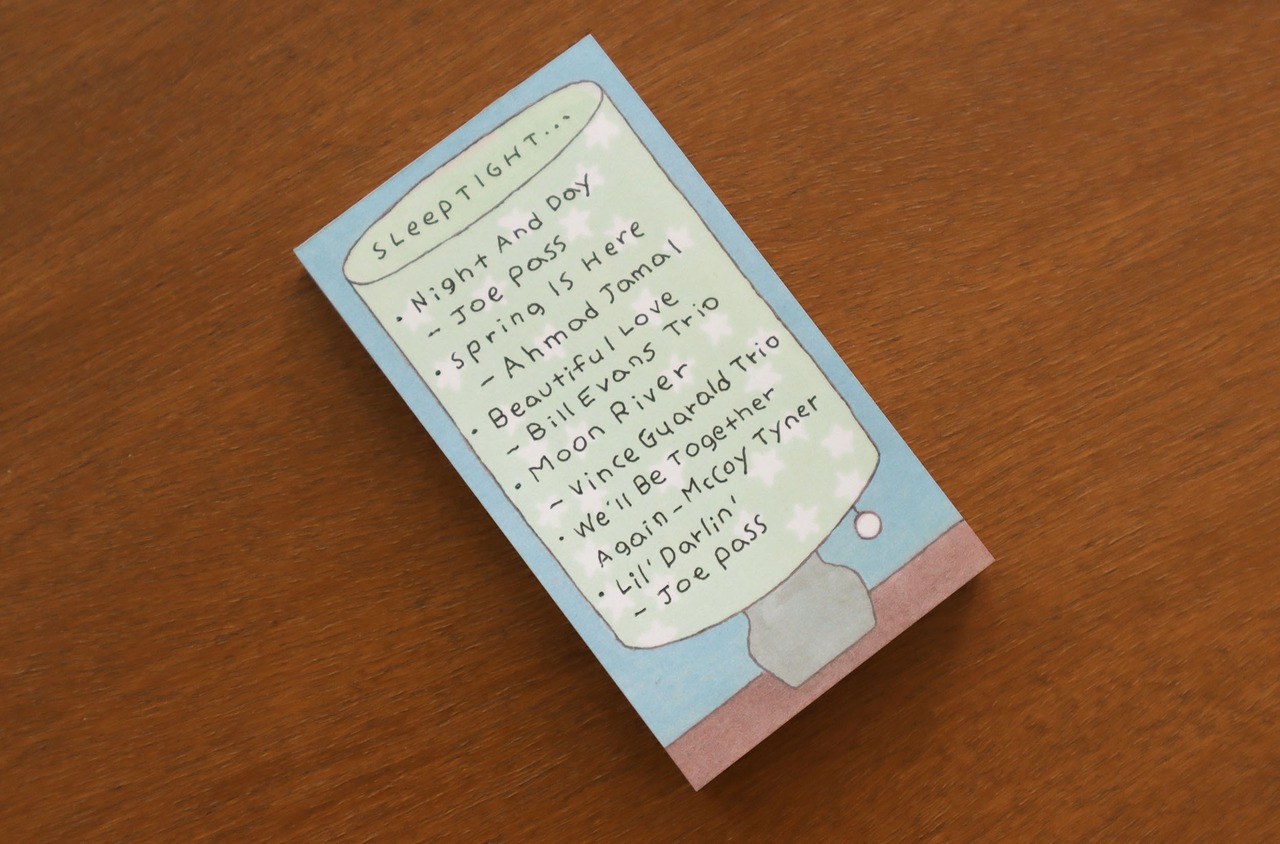 SLeepTIGHT...
• Night And Day
- Joe pass
• Spring Is Here
- Ahmad Jamal
• Beautiful Love
- Bill Evans Trio
• Moon River
- Vince Guarald Trio
• We'll Be Together
Again - McCoy Tyner
• Lil' Darlin'
- Joe pass